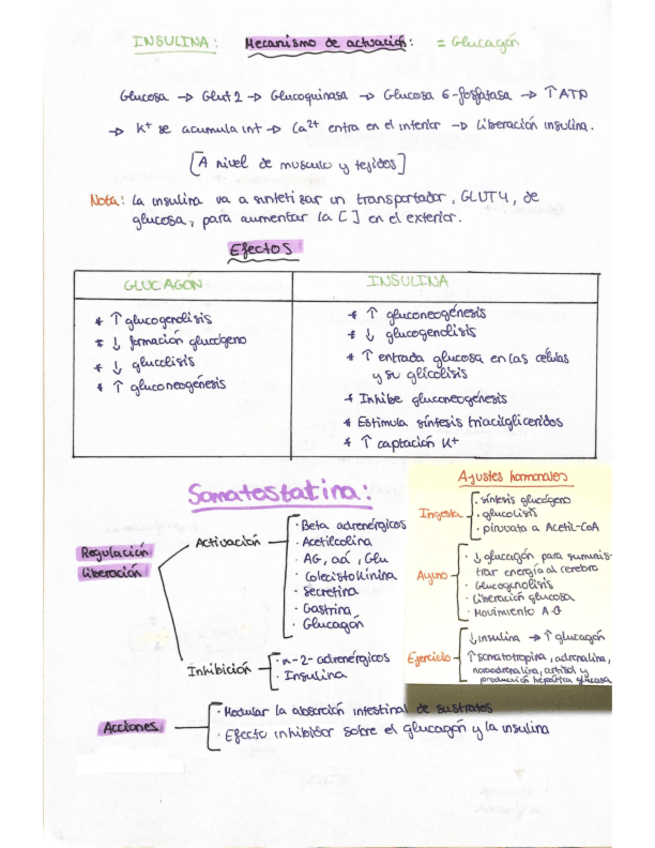 INSULINA: Mecanismo de actuación: = Glucagón
Glucosa → Glut 2 → Glucoquinasa → Glucosa 6-fosfatasa → ↑ ATP
→ K+ se acumula int → Ca2+ entra en el interior → Liberación insulina.
[A nivel de musculo y tejidos]
Nota: La insulina va a sintetizar un transportador, GLUT4, de
glucosa, para aumentar la [ ] en el exterior.
Efectos
GLUCAGÓN
* ↑ glucogenolisis
* ↓ formación glucógeno
* ↓ glucolisis
* ↑ gluconeogénesis
INSULINA
* ↑ gluconeogénesis
* ↓ glucogenolisis
* ↑ entrada glucosa en las células
y su glicolisis
* Inhibe gluconeogénesis
* Estimula síntesis triacilgliceridos
* ↑ captación K+
Somatostatina:
Regulación
liberación
Activación
· Beta adrenérgicos
· Acetilcolina
· AG, aá, Glu
· Colecistokinina
· Secretina
· Gastrina
· Glucagón
Inhibición
· α-2-adrenérgicos
· Insulina
Acciones
· Modular la absorción intestinal de sustratos
· Efecto inhibidor sobre el glucagón y la insulina
Ajustes hormonales
Ingesta
· síntesis glucógeno
· glucolisis
· piruvato a Acetil-CoA
Ayuno
· ↓ glucagón para suminis-
trar energía al cerebro
· Glucogenolisis
· Liberación glucosa
· Movimiento A.G
Ejercicio
↓ insulina → ↑ glucagón
↑ somatotropina, adrenalina,
noradrenalina, cortisol y
producción hepática glucosa